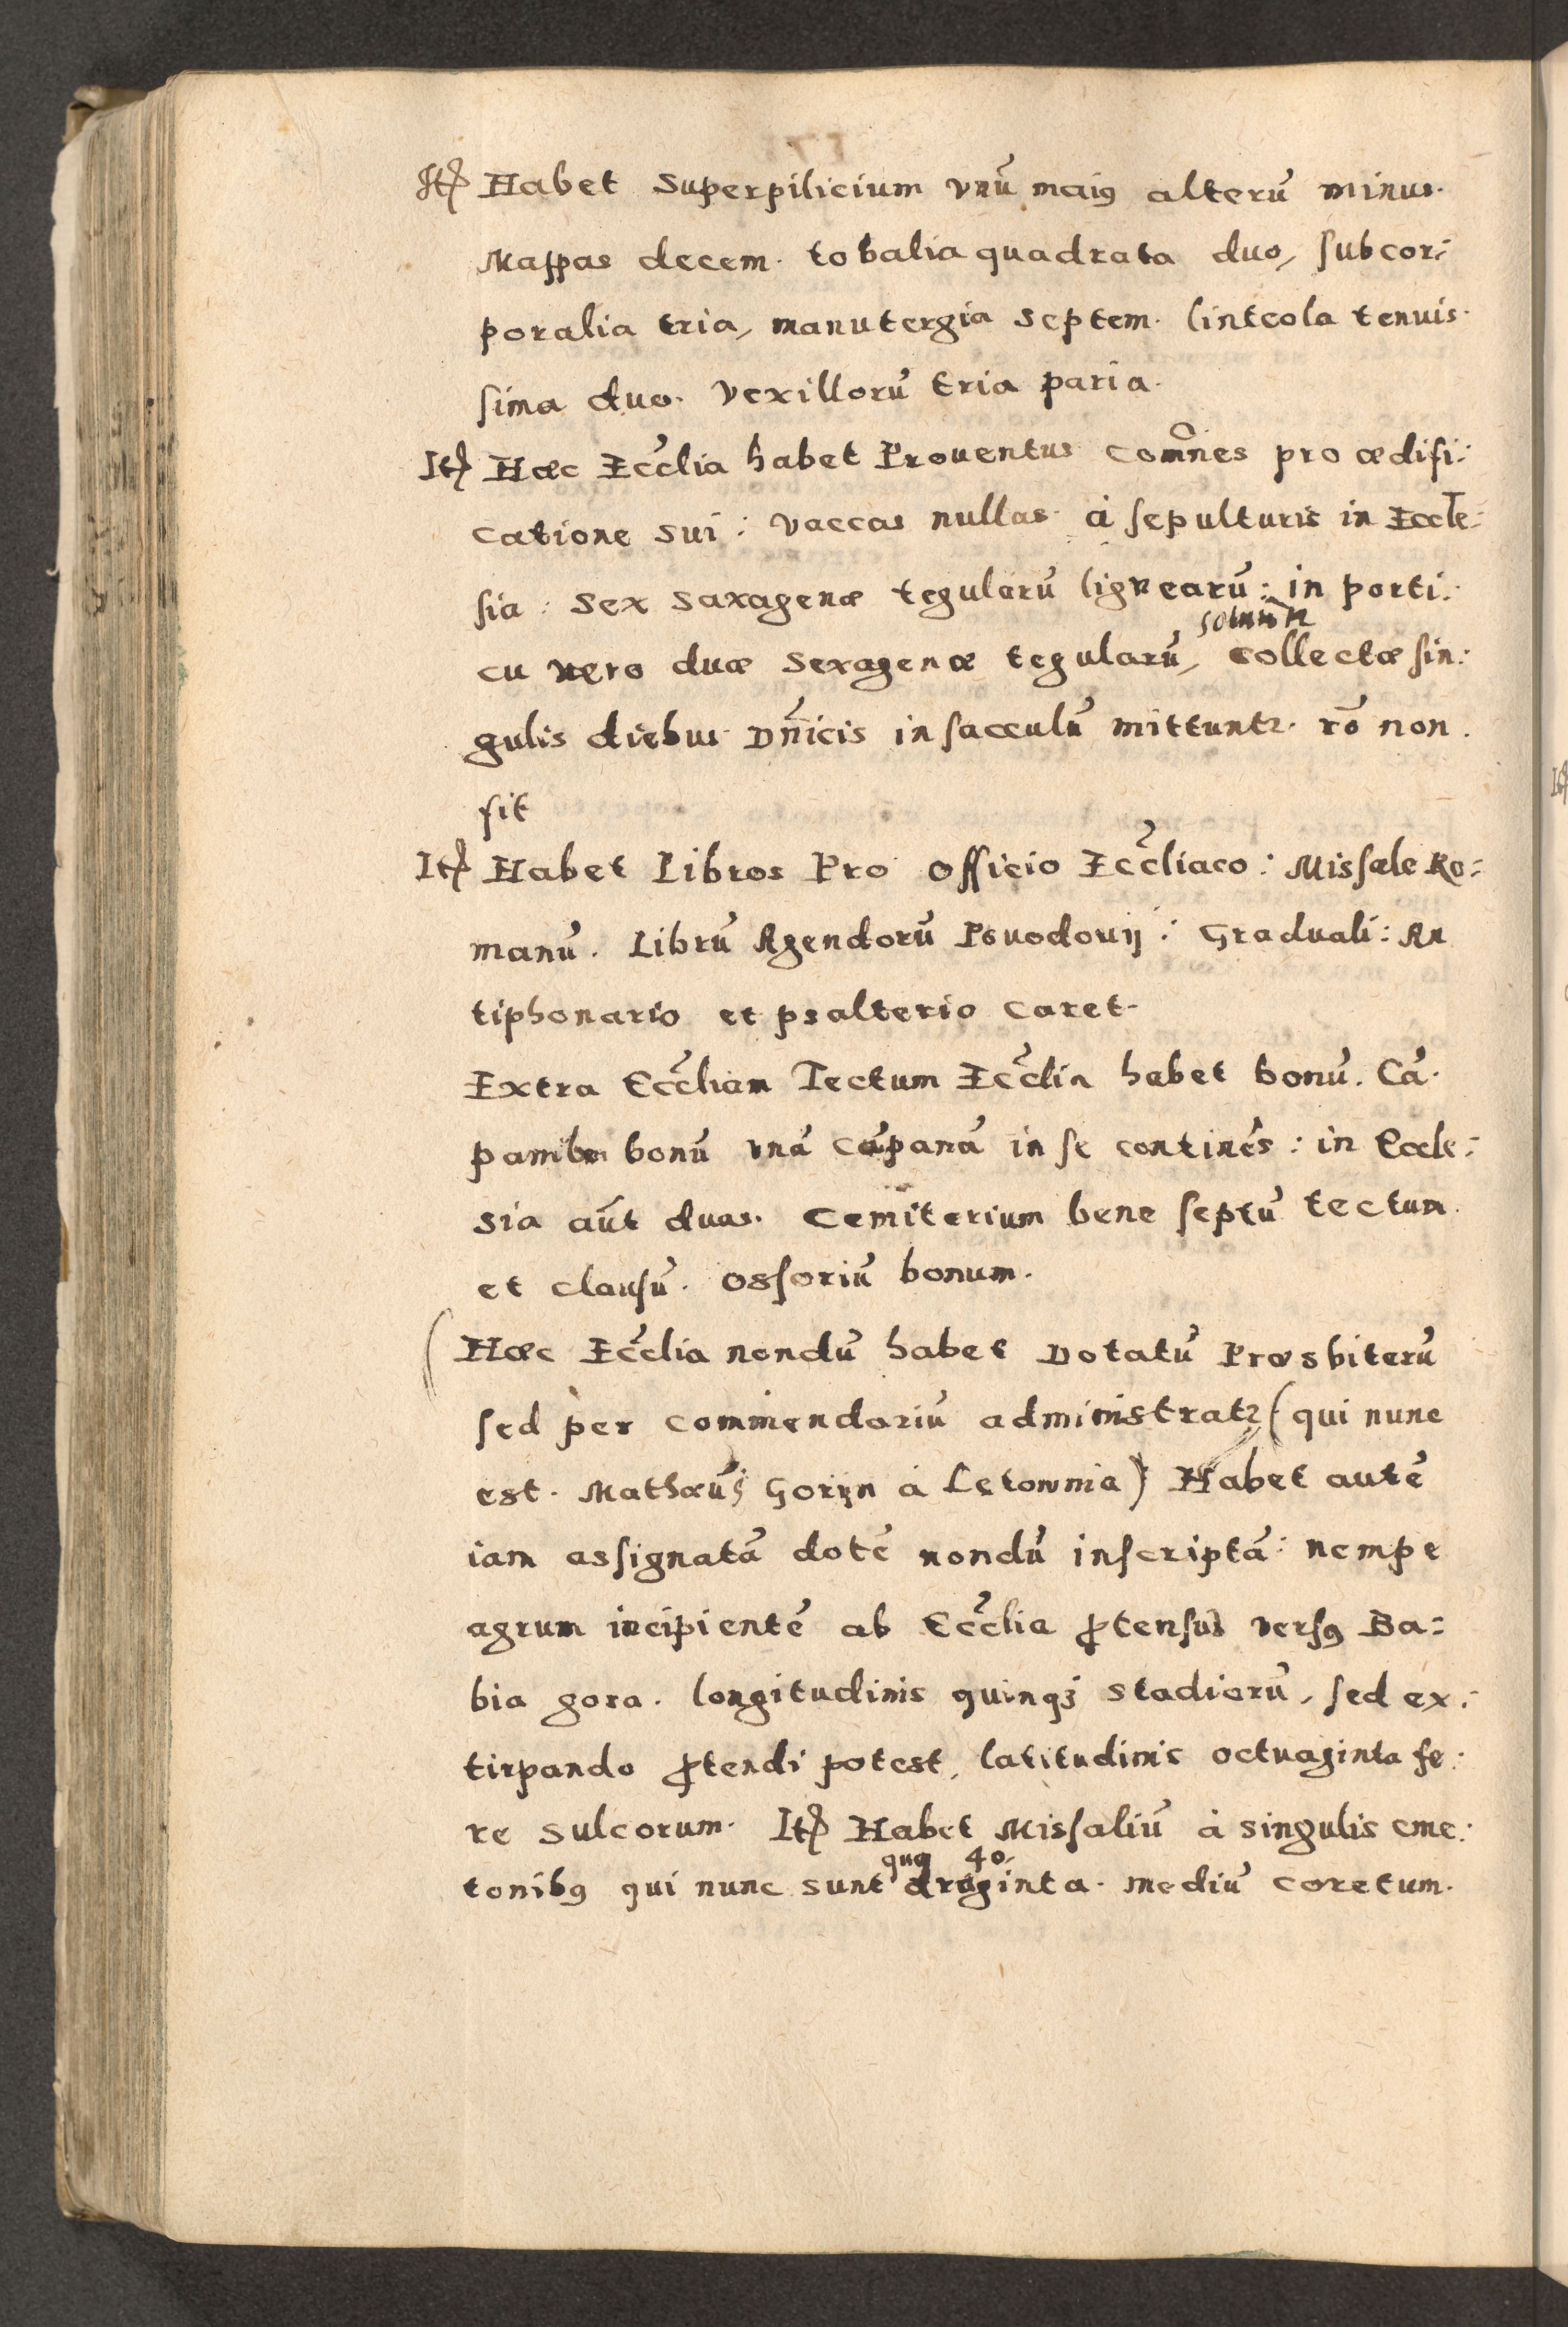 Itē Habet Superpilicium vnū maiꝰ alterū minus.
Mappas decem. tobalia quadrata duo, subcor:
poralia tria, manutergia septem. linteola tenuis.
sima duo. Vexillorū tria paria.
Itē Hæc Eccłia habet Prouentus Comnes pro ædifi:
catione sui: vaccas nullas. à sepulturis in Eccle:
sia: sex saxagenæ tegularū lignearū: in porti:
cu vero duæ sexagenæ tegularū, collectæ sin:
gulis diebus Dn̄icis in sacculū mittuntr. rō non.
fit
Itē Habet Libros Pro Officio Eccliaco: Missale Ro:
manū. Librū Agendorū Pouodouij: Graduali: An
tiphonario et psalterio caret.
Extra Eccliam Tectum Ecclia habet bonū. Cā.
panile bonū vnā cāpanā in se continēs: in Eccle:
sia aūt duas. Cemiterium bene septū tectum
et clausū. Ossoriū bonum.
(Hæc Ecclia nondū habet Dotatū Præsbiterū
sed per commendariū administratr (qui nunc
est. Mathæus Goryn à Letownia) Habet autē
iam assignatā dotē nondū inscriptā: nempe
agrum incipientē ab Ecclia ꝓtensū versꝰ Ba:
bia gora. longitudinis quinqꝫ stadiorū, sed ex:
tirpando ꝓtendi potest, latitudinis octuaginta fe:
re sulcorum. Itē Habet Missaliū à singulis cme:
qua 40
tonibꝰ qui nunc sunt draginta. mediū coretum.